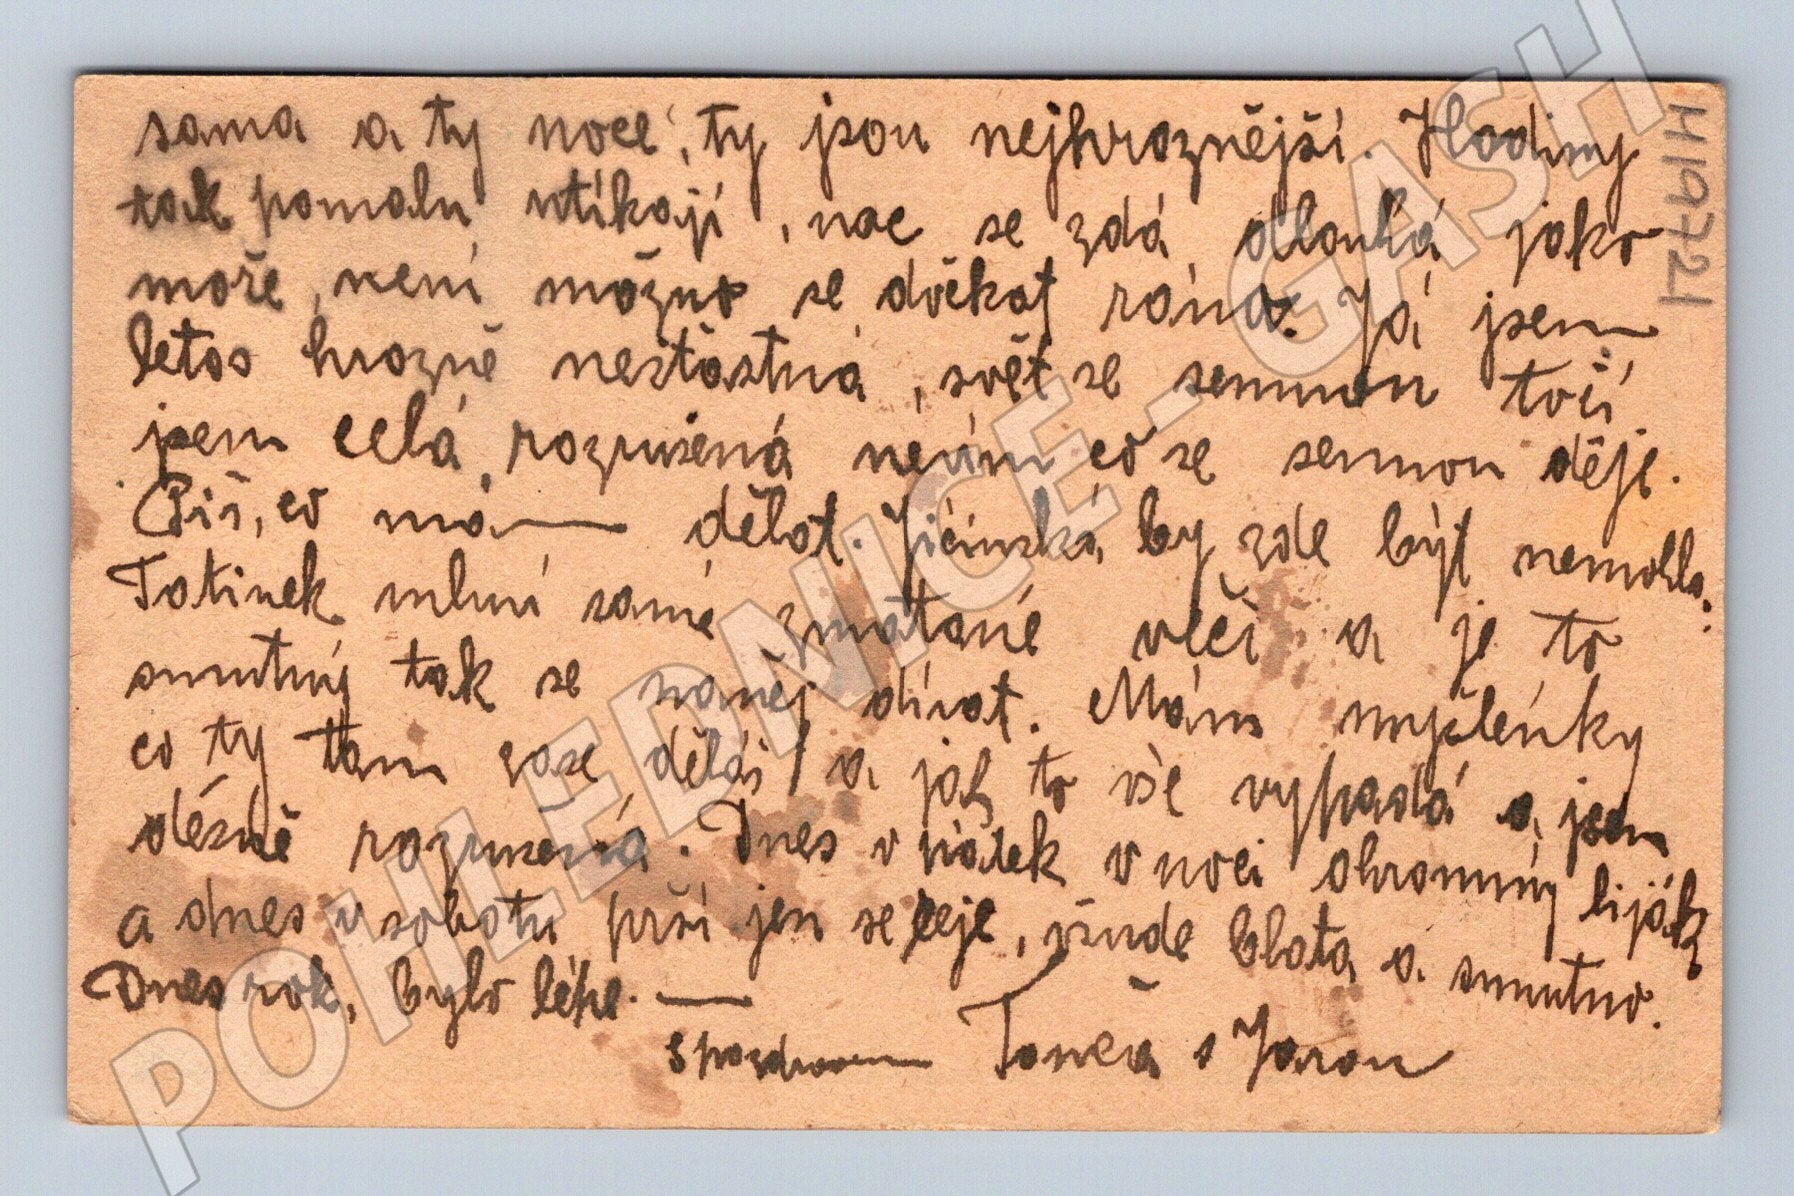 sama a ty noce, ty jsou nejhroznější. Hodiny
tak pomalu utíkají, noc se zdá dlouhá jako
moře, není možno se dočkat rána. Já jsem
letos hrozně nešťastná, svět se semnou točí
jsem celá rozrušená nevím co se semnou děje.
Piš, co mám dělat. Jičínská by zde být nemohla.
Tatínek mluví samé zmatené věci a je to
smutný tak se naněj dívat. Mám myšlénky
co ty tam zase děláš a jak to vše vypadá a jsem
děsně rozrušená. Dnes v pátek v noci ohromný liják
a dnes v sobotu prší jen se leje, všude blata a smutno.
Dnes rok, bylo lépe.
S pozdravem Tonča s Jarou
H19721
POHLEDNICE - GASH